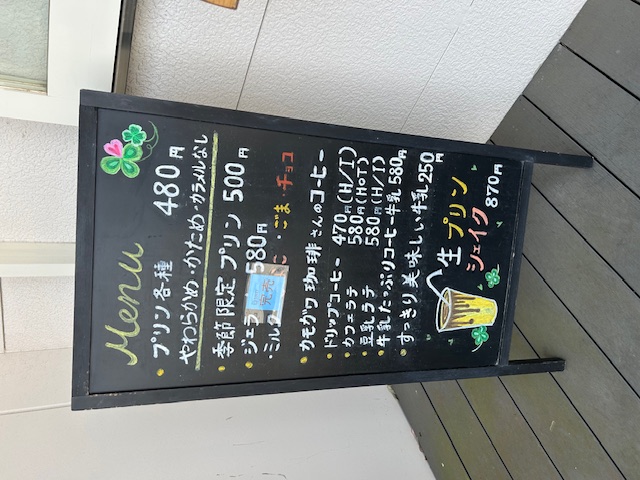 Menu
・プリン各種 480円
やわらかめ・かため・カラメルなし
・季節限定プリン 500円
・ジェラ 580円
・ミルク ・ごま・チョコ
完売
・カモガワ珈琲さんのコーヒー
・ドリップコーヒー 470円(H/I)
・カフェラテ 580円(HOT)
・豆乳ラテ 580円(H/I)
・牛乳たっぷりコーヒー牛乳 580円
・すっきり美味しい牛乳 250円
生プリン
シェイク 870円